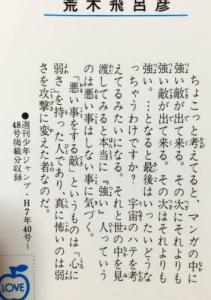 荒木飛呂彦
ちょこっと考えてると、マンガの中に
強い敵が出て来る。その次にそれよりも
強い敵が出て来る。その次はそれよりも
強い。…となると最後はいったいどうな
っちゃうわけですか？ 宇宙のハテを考
えてるみたいになる。それと世の中を見
渡してみると本当に『強い』人っていう
のは悪い事はしない事に気づく。
「悪い事をする敵」というものは「心に
弱さ」を持った人であり、真に怖いのは弱
さを攻撃に変えた者なのだ。
●週刊少年ジャンプ・H7年40号～
48号掲載分収録
LOVE